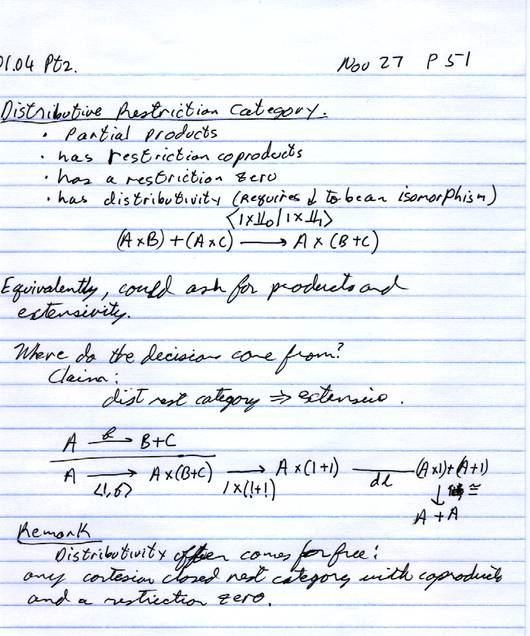 01.04 Pt2. Nov 27 P 51
Distributive Restriction Category.
• Partial products
• has restriction coproducts
• has a restriction zero
• has distributivity (requires ↓ to be an isomorphism)
⟨1×⊔₀|1×⊔₁⟩
(A×B)+(A×C) ⟶ A×(B+C)
Equivalently, could ask for products and
extensivity.
Where do the decisions come from?
Claim:
dist rest category ⇒ extensive.
A ⟶ B+C
A ⟶ A×(B+C) ⟶ A×(1+1) ⟶ (A×1)+(A+1)
⟨1,6⟩ 1×(!+!) dl ↓ ≅
A+A
Remark
Distributivity often comes for free:
any cartesian closed rest category with coproducts
and a restriction zero.